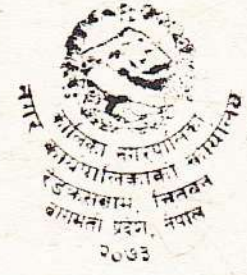 कालिका नगरपालिका
नगर कार्यपालिकाको कार्यालय
चितवन
बागमती प्रदेश, नेपाल
२०७३